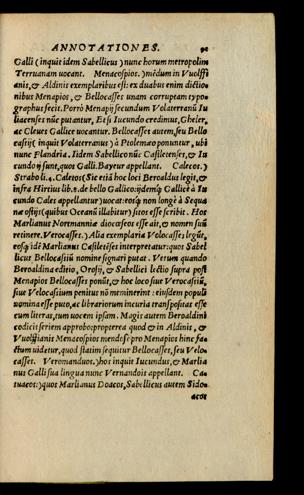 ANNOTATIONES. 91
Galli (inquit idem Sabellicus) nunc horum metropolim
Terruanam uocant. Menacospios.) mẽdum in Vuolffi
anis, & Aldinis exemplaribus est: ex duabus enim dictio
nibus Menapios, & Bellocasses unam corruptam typo
graphus fecit. Porrò Menapij secundum Volaterranũ Iu
liacenses nũc putantur, Et si Iucundo credimus, Gheler,
ac Cleues Gallice uocantur. Bellocasses autem, seu Bello
casij (inquit Volaterranus) à Ptolemæo ponuntur, ubi
nunc Flandria. Iidem Sabellico nũc Casiletenses, & Iu
cundo ij sunt, quos Galli Bayeux appellant. Caletes.)
Strabo li.4. Caletos (Sic etiã hoc loci Beroaldus legit, &
infra Hirtius lib.8. de bello Gallico: ijdemq́; Gallicè à Iu
cundo Cales appellantur) uocat: eosq́; non longè à Sequa
næ ostijs (quibus Oceanũ illabitur) sitos esse scribit. Hos
Marlianus Normanniæ diœceseos esse ait, & nomen suũ
retinere. Verocasses.) Alia exemplaria Velocasses legũt,
eosq́; idẽ Marlianus Casiletẽses interpretatur: quos Sabel
licus Bellocassiũ nomine signari putat. Verum quando
Beroaldina editio, Orosij, & Sabellici lectio supra post
Menapios Bellocasses ponit, & hoc loco siue Verocassiũ,
siue Velocassium penitus nõ meminerint: eiusdem populi
nomina esse puto, ac librariorum incuria transpositas esse
cum literas, tum uocem ipsam. Magis autem Beroaldini
codicis seriem approbo: propterea quod & in Aldinis, &
Vuolffianis Menacospios mendose pro Menapios hinc fa
ctum uidetur, quod statim sequitur Bellocasses, seu Velo
casses. Veromanduos.) hos inquit Iucundus, & Marlia
nus Galli sua lingua nunc Vernandois appellant. Ca
tuacos:) quos Marlianus Doacos, Sabellicus autem Sido
acos